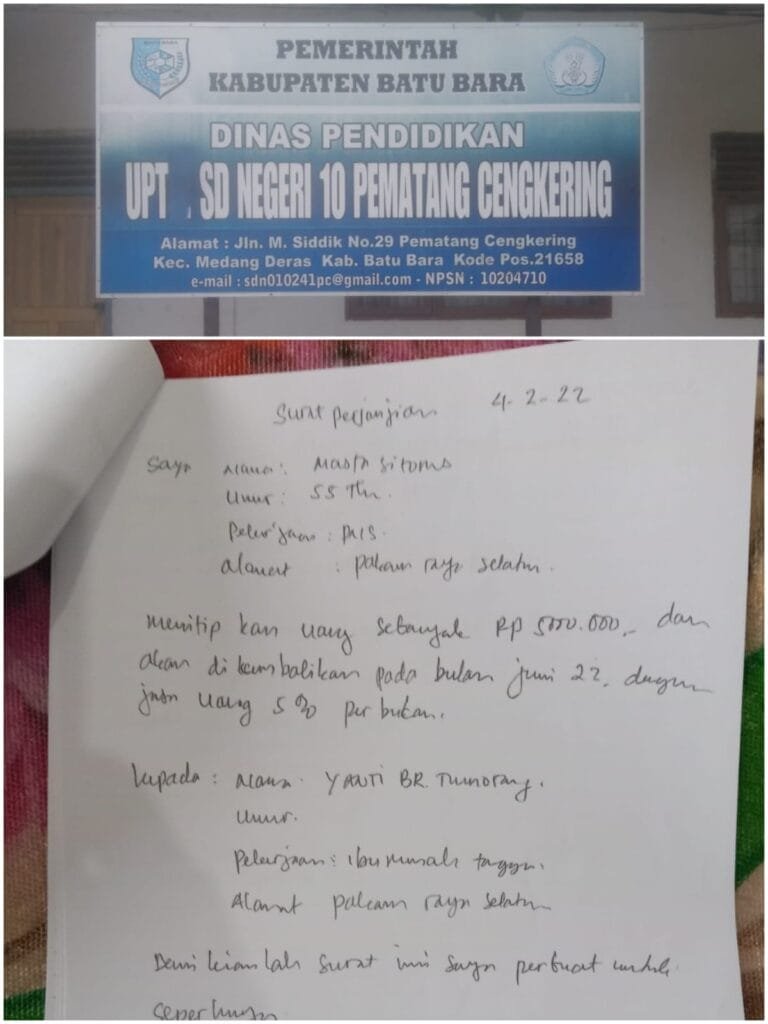 PEMERINTAH
KABUPATEN BATU BARA
DINAS PENDIDIKAN
UPT . SD NEGERI 10 PEMATANG CENGKERING
Alamat : Jln. M. Siddik No.29 Pematang Cengkering
Kec. Medang Deras Kab. Batu Bara Kode Pos.21658
e-mail : sdn010241pc@gmail.com - NPSN : 10204710
Surat perjanjian 4-2-22
Saya Nama: Masta Sitorus
Umur: 55 Thn.
Pekerjaan: PNS.
Alamat : pakam raya selatan.
Menitip kan uang sebanyak RP 5000.000,- dan
akan di kembalikan pada bulan juni 22. dengan
jasa uang 5% per bulan.
kepada: Nama. YANTI BR.
Umur.
Pekerjaan: ibu rumah tangga.
Alamat pakam raya selatan
Demikianlah surat ini saya perbuat untuk
seperlunya